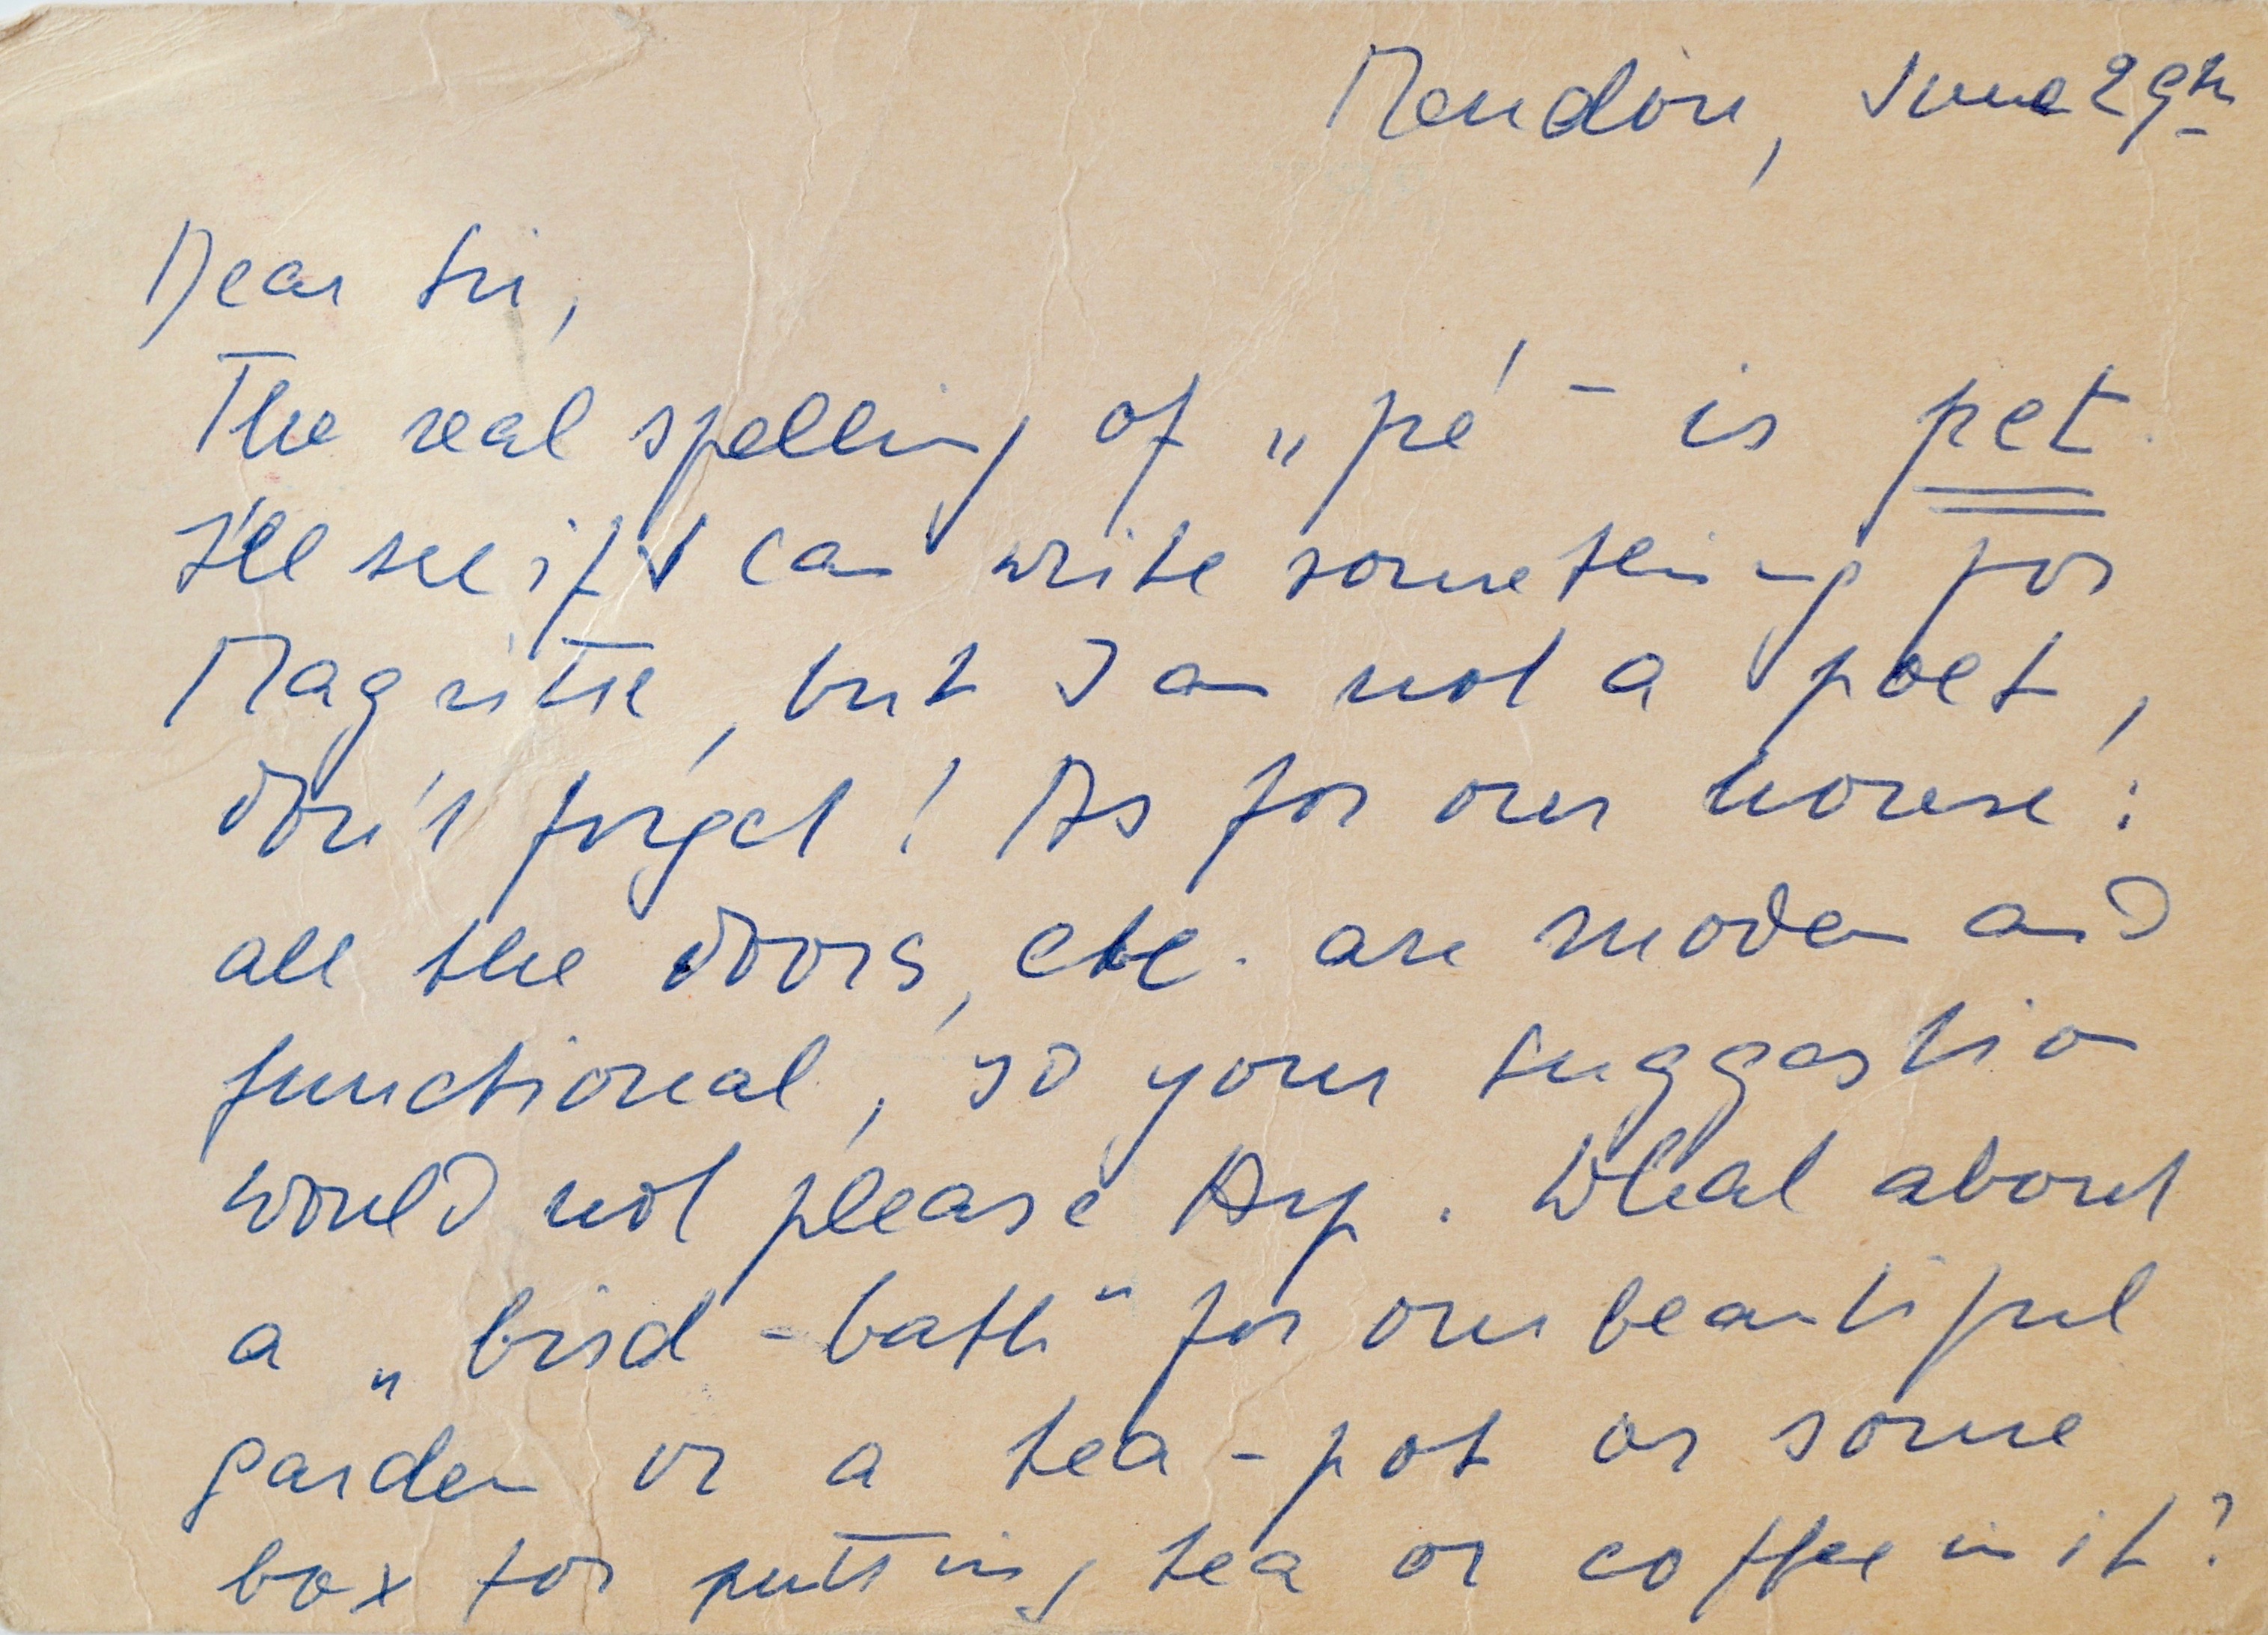 Meudon, June 29th
Dear Sir,
The real spelling of „pé" is pet.
I'll see if I can write something for
Magritte, but I am not a poet,
don't forget! As for our house:
all the doors, etc. are modern and
functional, so your suggestion
would not please Arp. What about
a „bird-bath" for our beautiful
garden or a tea-pot or some
box for putting tea or coffee in it?